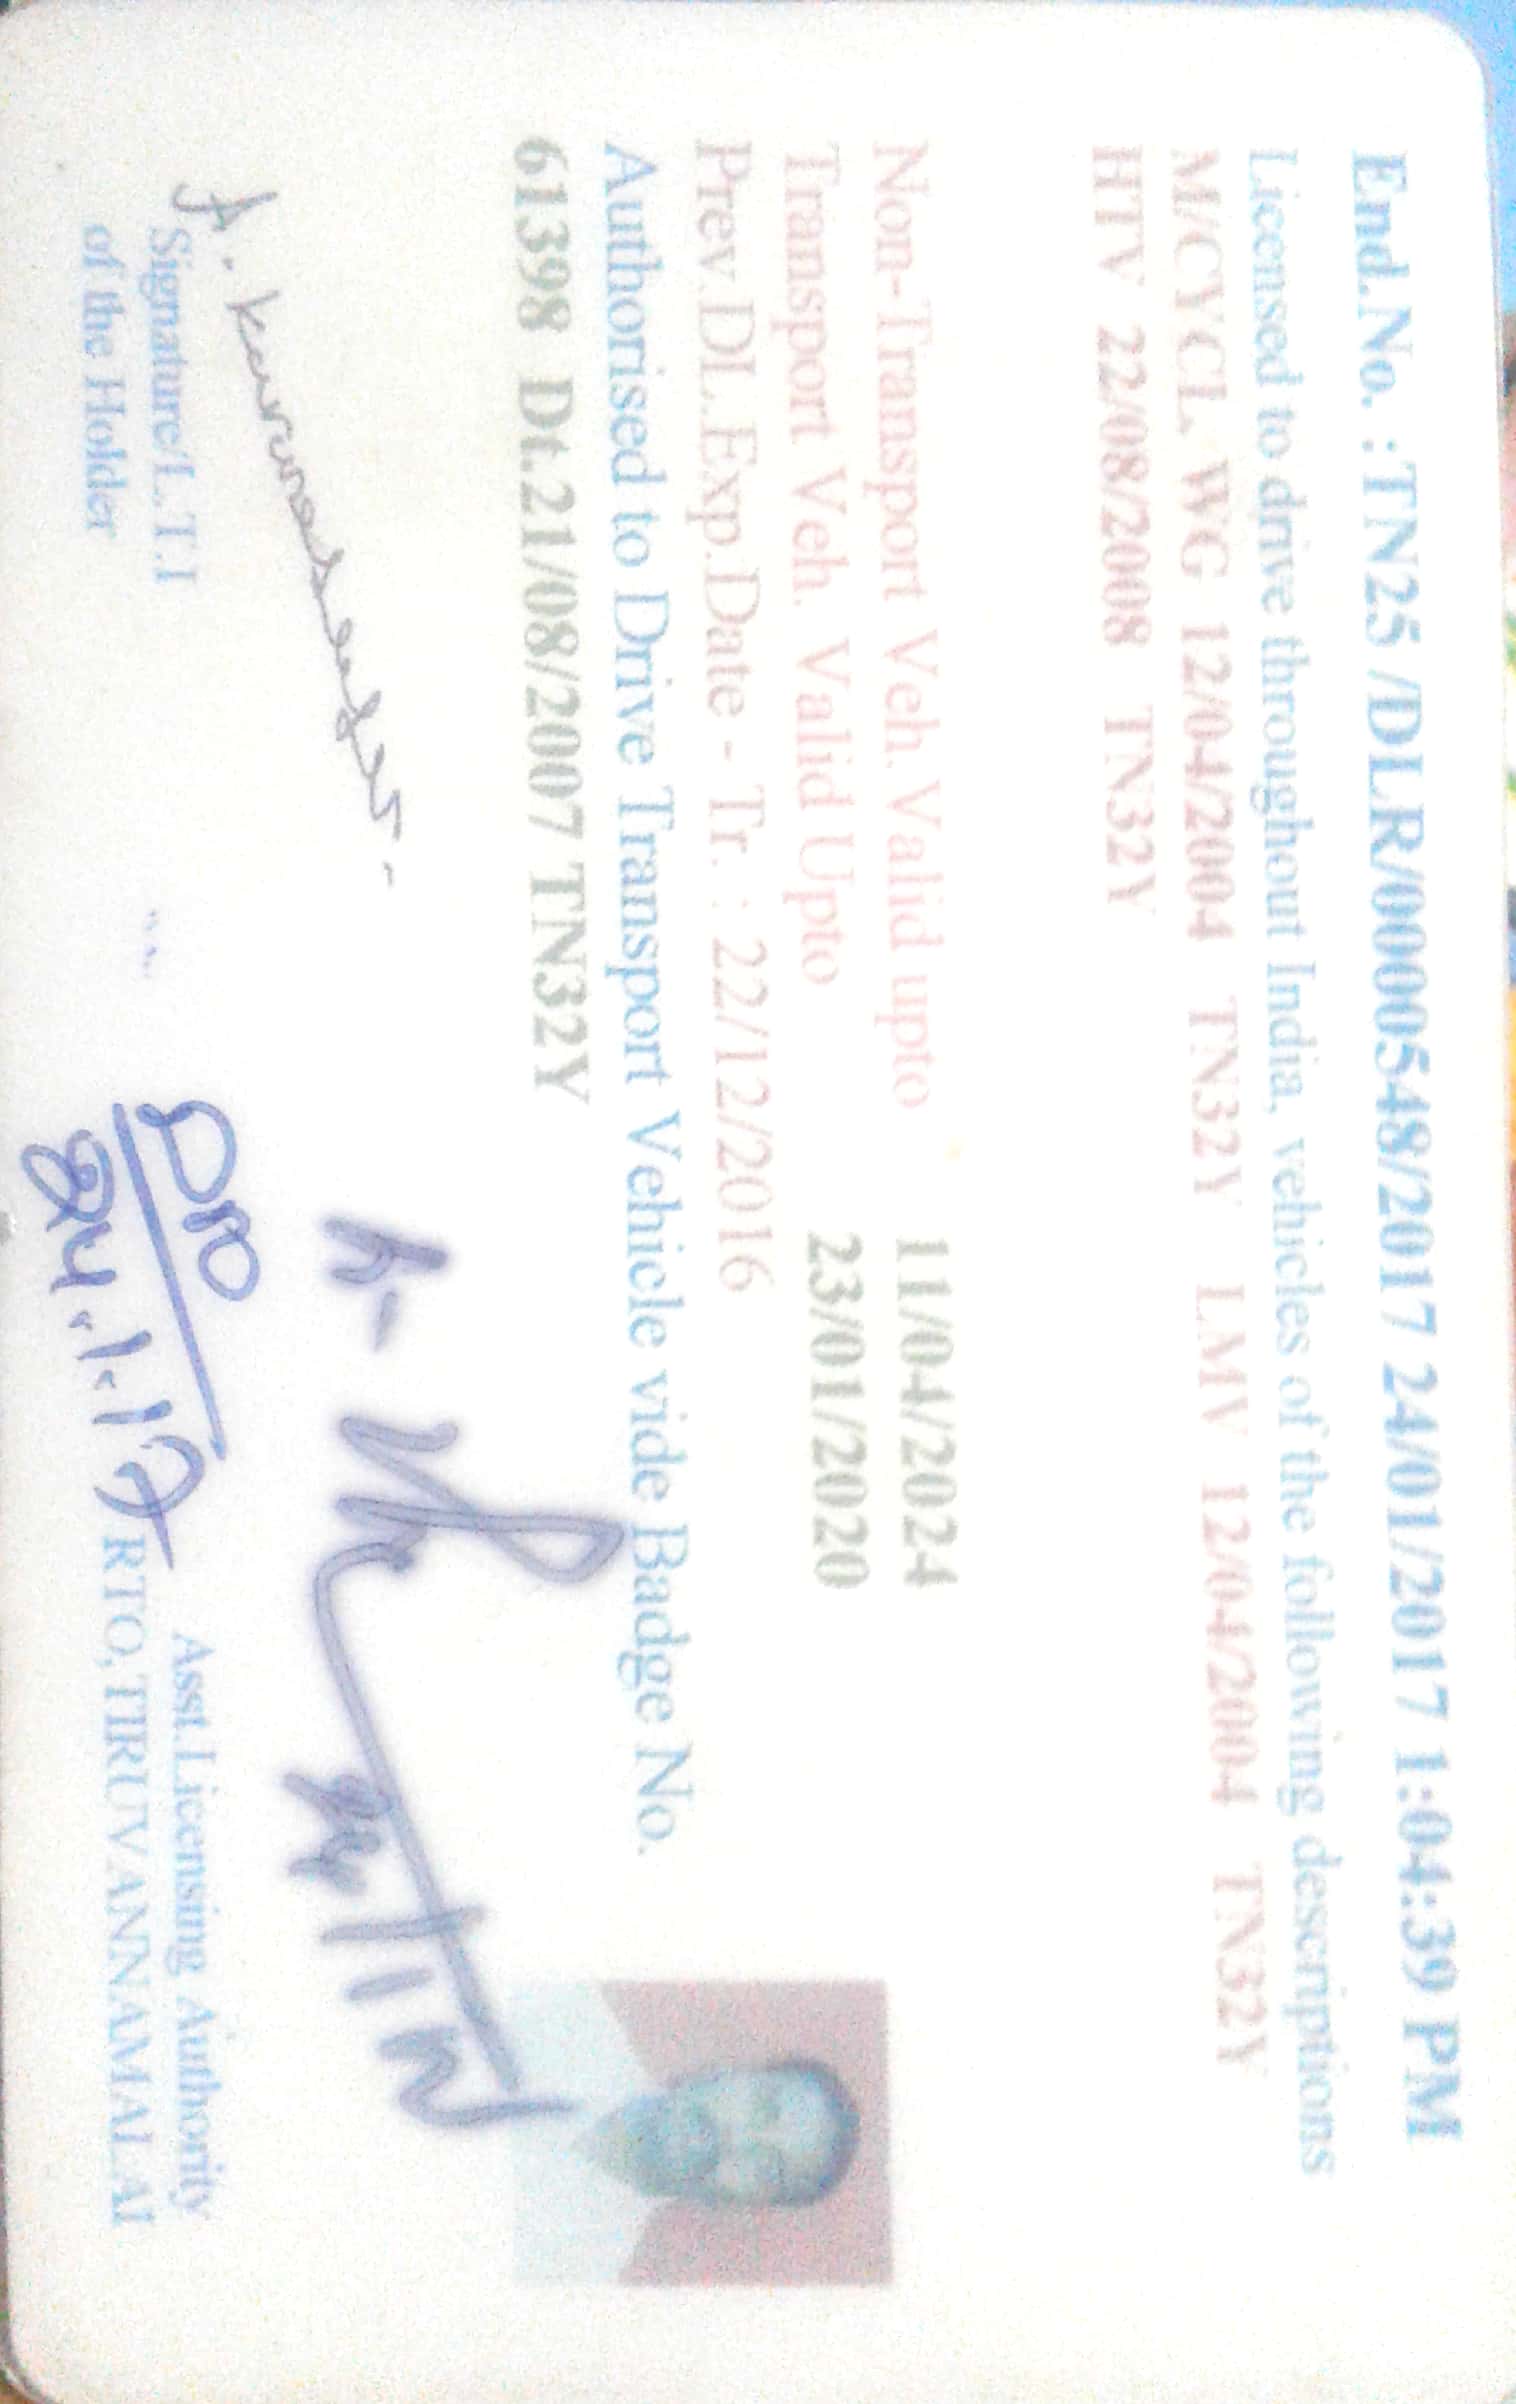 End.No. :TN25 /DLR/0000548/2017 24/01/2017 1:04:39 PM
Licensed to drive throughout India, vehicles of the following descriptions
M/CYCL. WG 12/04/2004 TN32Y LMV 12/04/2004 TN32Y
HTV 22/08/2008 TN32Y
Non-Transport Veh.Valid upto 11/04/2024
Transport Veh. Valid Upto 23/01/2020
Prev.DL.Exp.Date - Tr. : 22/12/2016
Authorised to Drive Transport Vehicle vide Badge No.
61398 Dt.21/08/2007 TN32Y
Signature/L.T.I
of the Holder
24.1.17
Asst.Licensing Authority
RTO,TIRUVANNAMALAI